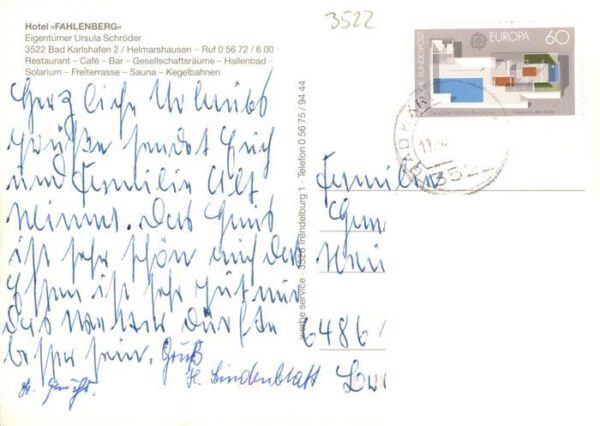 Hotel »FAHLENBERG«
Eigentümer Ursula Schröder
3522 Bad Karlshafen 2 / Helmarshausen – Ruf 0 56 72 / 6 00
Restaurant – Café – Bar – Gesellschaftsräume – Hallenbad –
Solarium – Freiterrasse – Sauna – Kegelbahnen
Herzliche Urlaubs
grüße sendet Euch
und Familie Alt
Das Haus
ist sehr schön auch das
Essen ist sehr gut nur
das Wetter dürfte
besser sein. Gruß
H. Lindenblatt
werbe service · 3526 Trendelburg 1 · Telefon 0 56 75 / 94 44
3522
DEUTSCHE BUNDESPOST
EUROPA
60
BAD KAR
352
Familie
6486